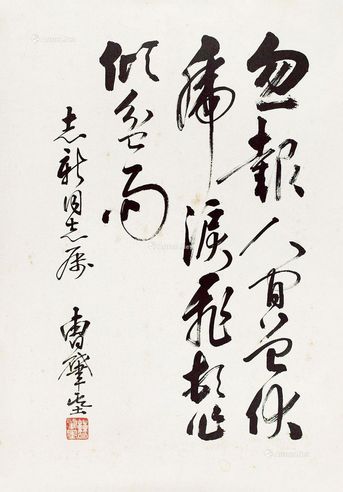 忽報人間曾伏
虎淚飛頓作
傾盆雨
志新同志屬
曹肇基